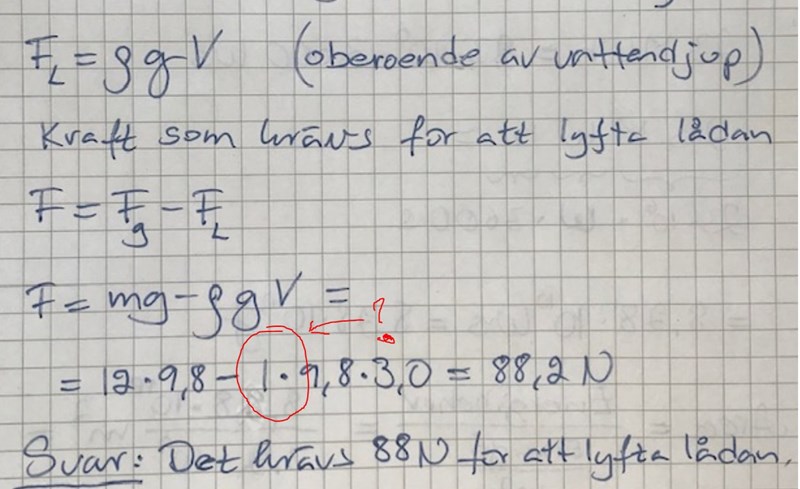 F_L = ρgV (oberoende av vattendjup)
Kraft som krävs for att lyfta lådan
F = F_g - F_L
F = mg - ρgV =
?
= 12·9,8 - 1·9,8·3,0 = 88,2 N
Svar: Det krävs 88N for att lyfta lådan.